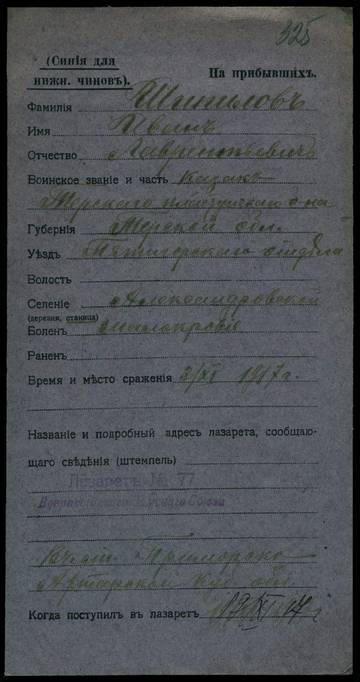 325
(Синія для
нижн. чиновъ).
На прибывшихъ.
Фамилія Шипиловъ
Имя Иванъ
Отчество Лаврентьевичъ
Воинское званіе и часть казакъ
Терскаго
Губернія Терской обл.
Уѣздъ Пятигорскаго отдѣла
Волость
Селеніе Александровской
(деревня, станица)
Боленъ малокровіе
Раненъ
Время и мѣсто сраженія 3/XI 1917 г.
Названіе и подробный адресъ лазарета, сообщаю-
щаго свѣдѣнія (штемпель)
Лазаретъ № 77
Союза
Приморско
Ахтарской Куб. обл.
Когда поступилъ въ лазаретъ